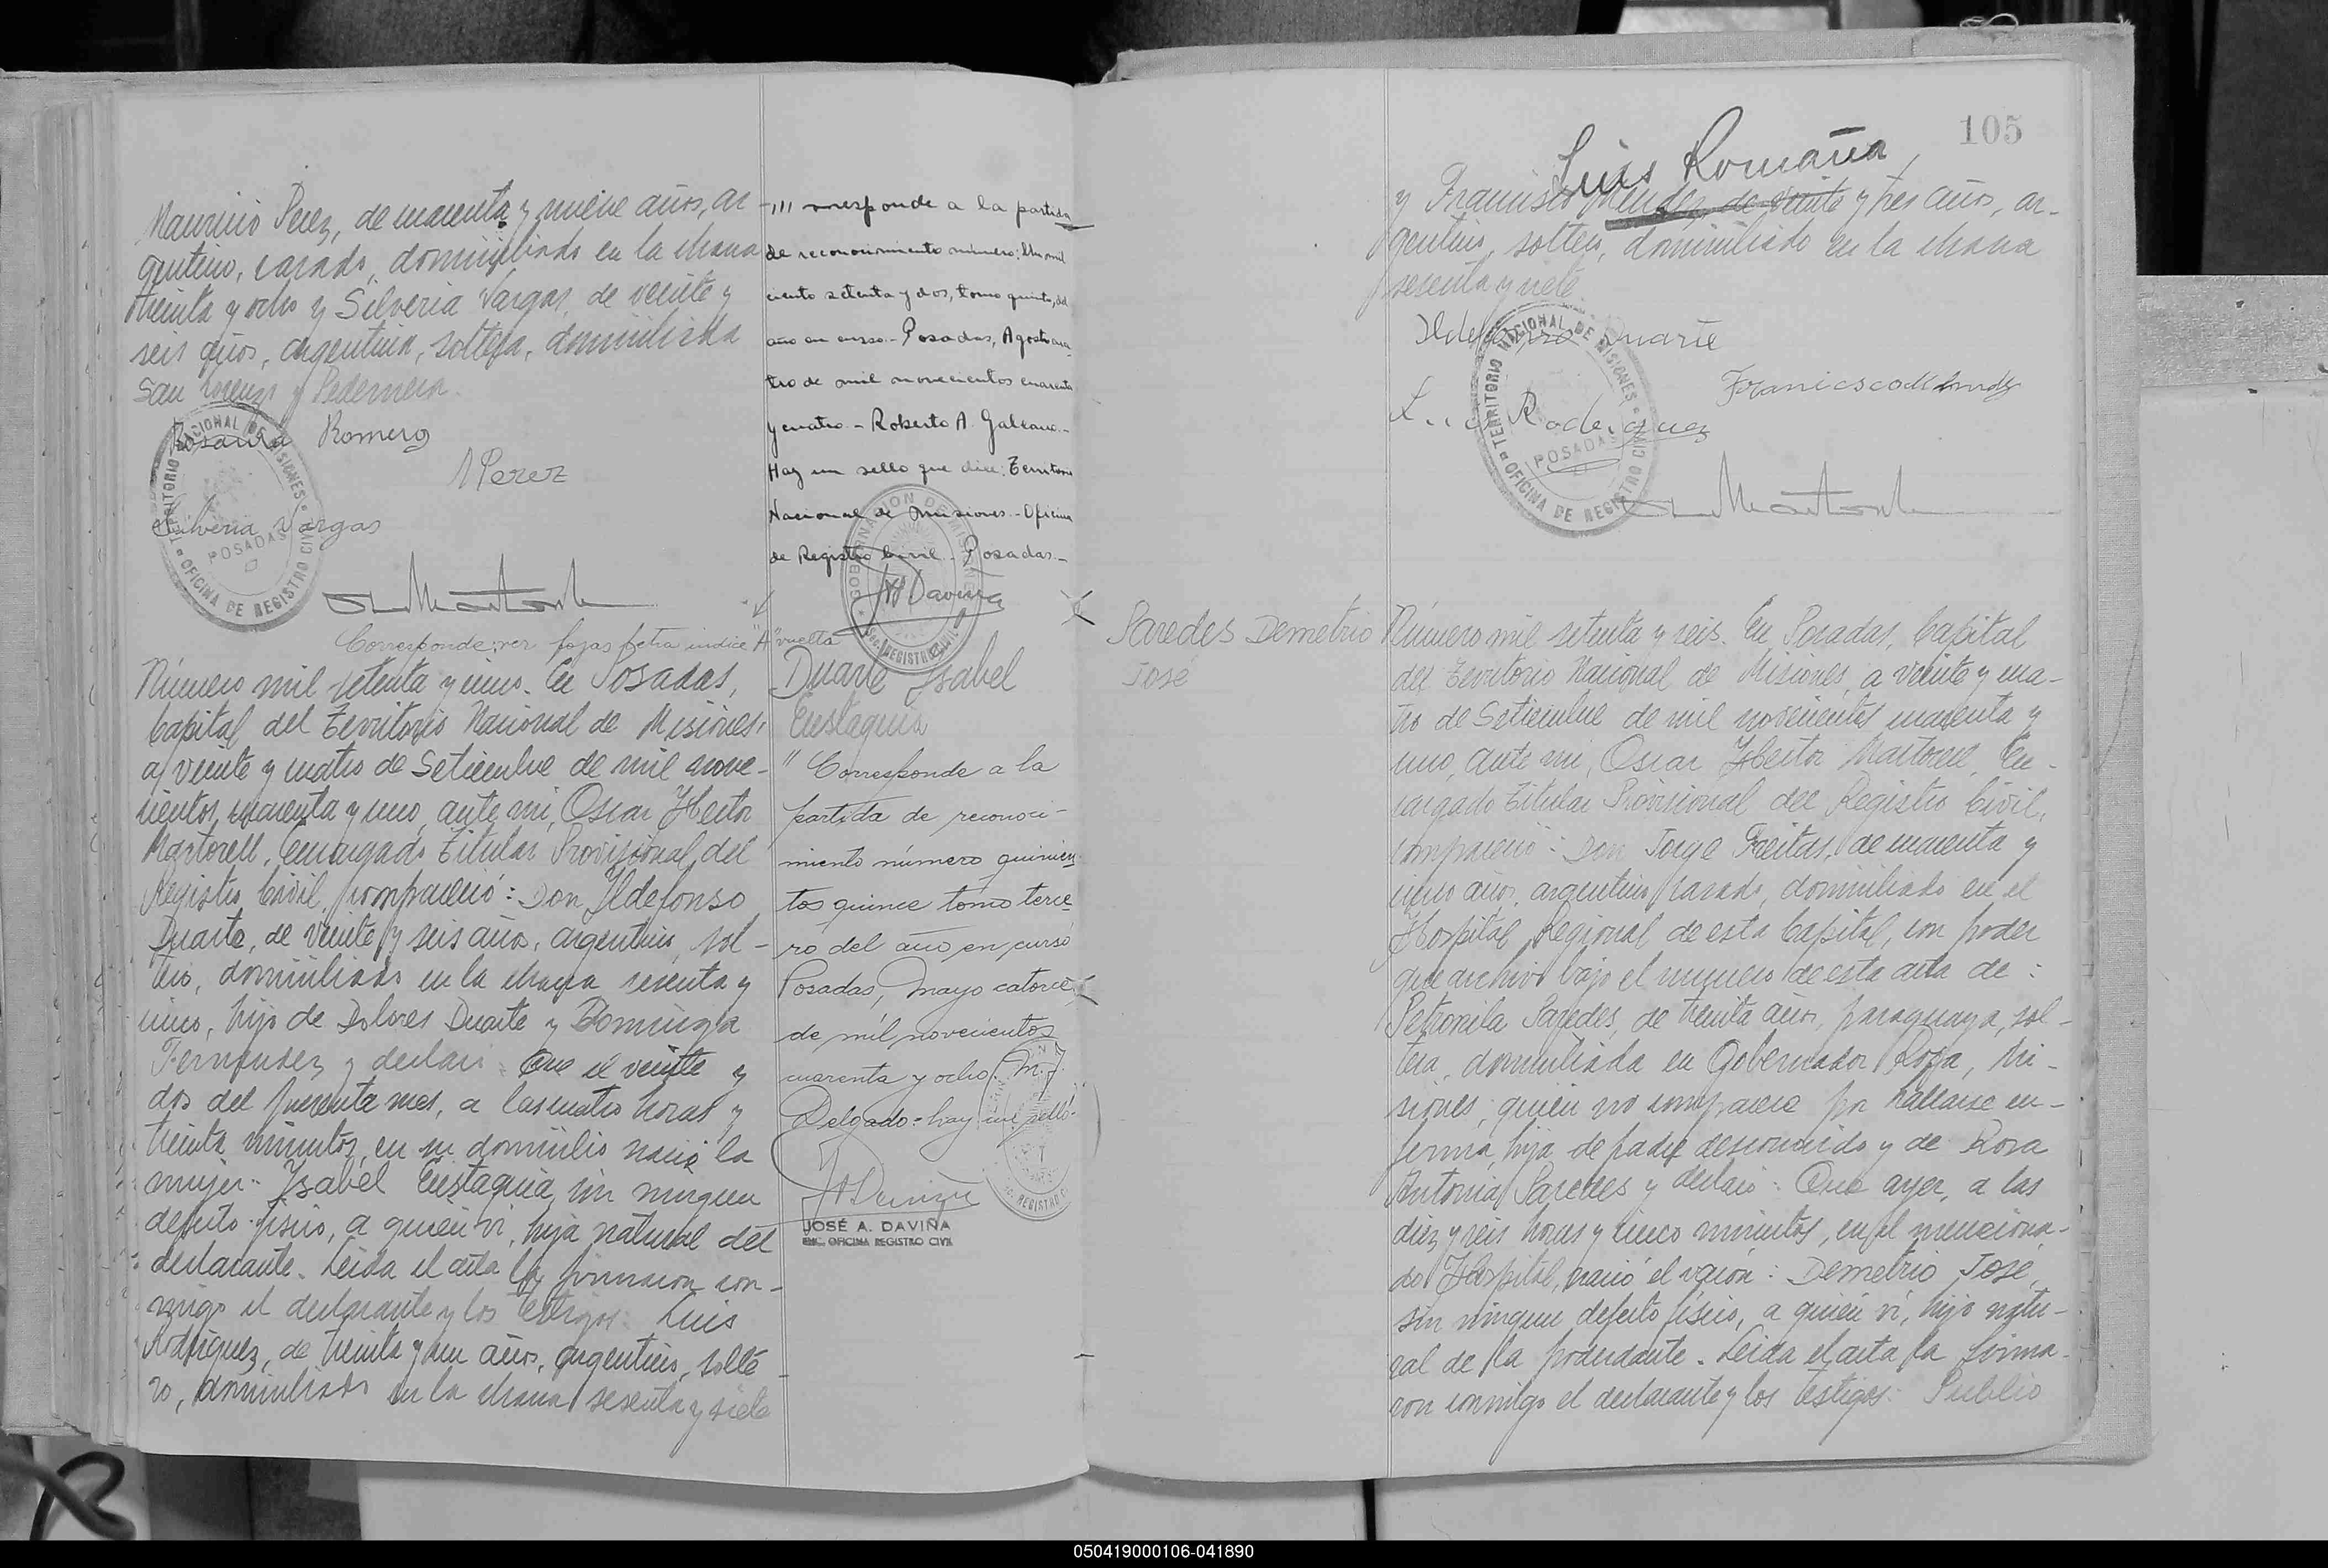 Mauricio Perez, de cuarenta y nueve años, ar-
gentino, casado, domiciliado en la chacra
treinta y ocho y Silveria Vargas, de veinte y
seis años, argentina, soltera, domiciliada
San Lorenzo y Pedernera.
Rosaura Romero
MPerez
Silveria Vargas
TERRITORIO NACIONAL DE MISIONES
POSADAS
OFICINA DE REGISTRO CIVIL
Corresponde: ver fojas letra indice "A" vuelta
Número mil setenta y cinco. En Posadas,
Capital del Territorio Nacional de Misiones,
a veinte y cuatro de Setiembre de mil nove-
cientos cuarenta y uno, ante mi, Oscar Hector
Martorell, Encargado Titular Provisional del
Registro Civil, compareció: Don Ildefonso
Duarte, de veinte y seis años, argentino, sol-
tero, domiciliado en la chacra sesenta y
cinco, hijo de Dolores Duarte y Dominga
Fernandez y declaró: Que el veinte y
dos del presente mes, a las cuatro horas y
treinta minutos, en su domicilio nació la
mujer: Isabel Eustaquia, sin ningun
defecto fisico, a quien vi, hija natural del
declarante. Leida el acta la firmaron con-
migo el declarante y los testigos: Luis
Rodriguez, de treinta y un años, argentino, solte-
ro, domiciliado en la chacra sesenta y siete
/// rresponde a la partida
de reconocimiento número: Un mil
ciento setenta y dos, tomo quinto, del
año en curso.- Posadas, Agosto cua-
tro de mil novecientos cuarenta
y cuatro - Roberto A. Galeano.-
Hay un sello que dice: Territorio
Nacional de Misiones.- Oficina
de Registro Civil - Posadas.-
GOBERNACION DE MISIONES
REGISTRO CIVIL
JADaviña
Duarte Isabel
Eustaquia
"Corresponde a la
partida de reconoci-
miento número quinien-
tos quince tomo terce-
ro del año en curso
Posadas, Mayo catorce
de mil novecientos
cuarenta y ocho. M. J.
Delgado - hay un sello-
JADaviña
JOSÉ A. DAVIÑA
ENC. OFICINA REGISTRO CIVIL
REGISTRO
105
Luis Romaña
y Francisco Mendez de veinte y tres años, ar-
gentino, soltero, domiciliado en la chacra
sesenta y siete.
Ildefonso Duarte
Francisco Mendez
L... Rodriguez
TERRITORIO NACIONAL DE MISIONES
POSADAS
OFICINA DE REGISTRO CIVIL
Paredes Demetrio
José
Número mil setenta y seis. En Posadas, Capital
del Territorio Nacional de Misiones, a veinte y cua-
tro de Setiembre de mil novecientos cuarenta y
uno, ante mi, Oscar Hector Martorell, En-
cargado Titular Provisional del Registro Civil,
compareció: Don Jorge Freitas, de cuarenta y
cinco años, argentino, casado, domiciliado en el
Hospital Regional de esta Capital, con poder
que archivo bajo el numero de esta acta de:
Petronila Paredes, de treinta años, paraguaya, sol-
tera, domiciliada en Gobernador Roca, Mi-
siones, quien no comparece por hallarse en-
ferma, hija de padre desconocido y de Rosa
Antonia Paredes y declaró: Que ayer, a las
diez y seis horas y cinco minutos, en el menciona-
do Hospital, nació el varón: Demetrio José,
sin ningun defecto fisico, a quien vi, hijo natu-
ral de la poderdante. Leida el acta la firma-
ron conmigo el declarante y los testigos: Publio
050419000106-041890